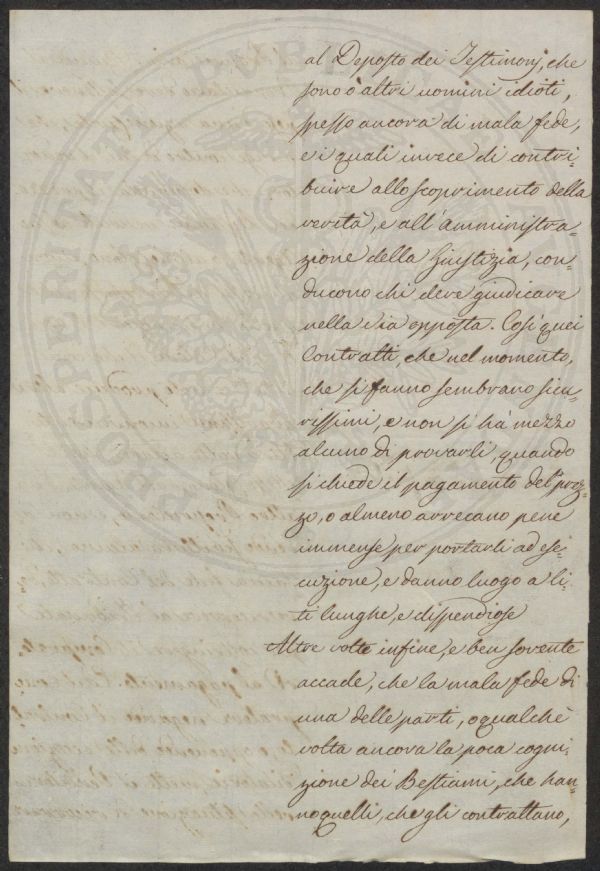 al Deposto dei Testimonj, che
sono o altri uomini idioti,
spesso ancora di mala fede,
e i quali invece di contri-
buire allo scoprimento della
verità, e all'Amministra-
zione della Giustizia, con-
ducono chi deve giudicare
nella via opposta. Così quei
Contratti, che nel momento,
che si fanno sembrano sicu-
rissimi, e non si hà mezzo
alcuno di provarli, quando
si chiede il pagamento del prez-
zo, o almeno arrecano pene
immense per portarli ad ese-
cuzione, e danno luogo a li-
ti lunghe, e dispendiose
Altre volte infine, e ben sovente
accade, che la mala fede di
una delle parti, o qualchè
volta ancora la poca cogni-
zione dei Bestiami, che han-
no quelli, che gli contrattano,